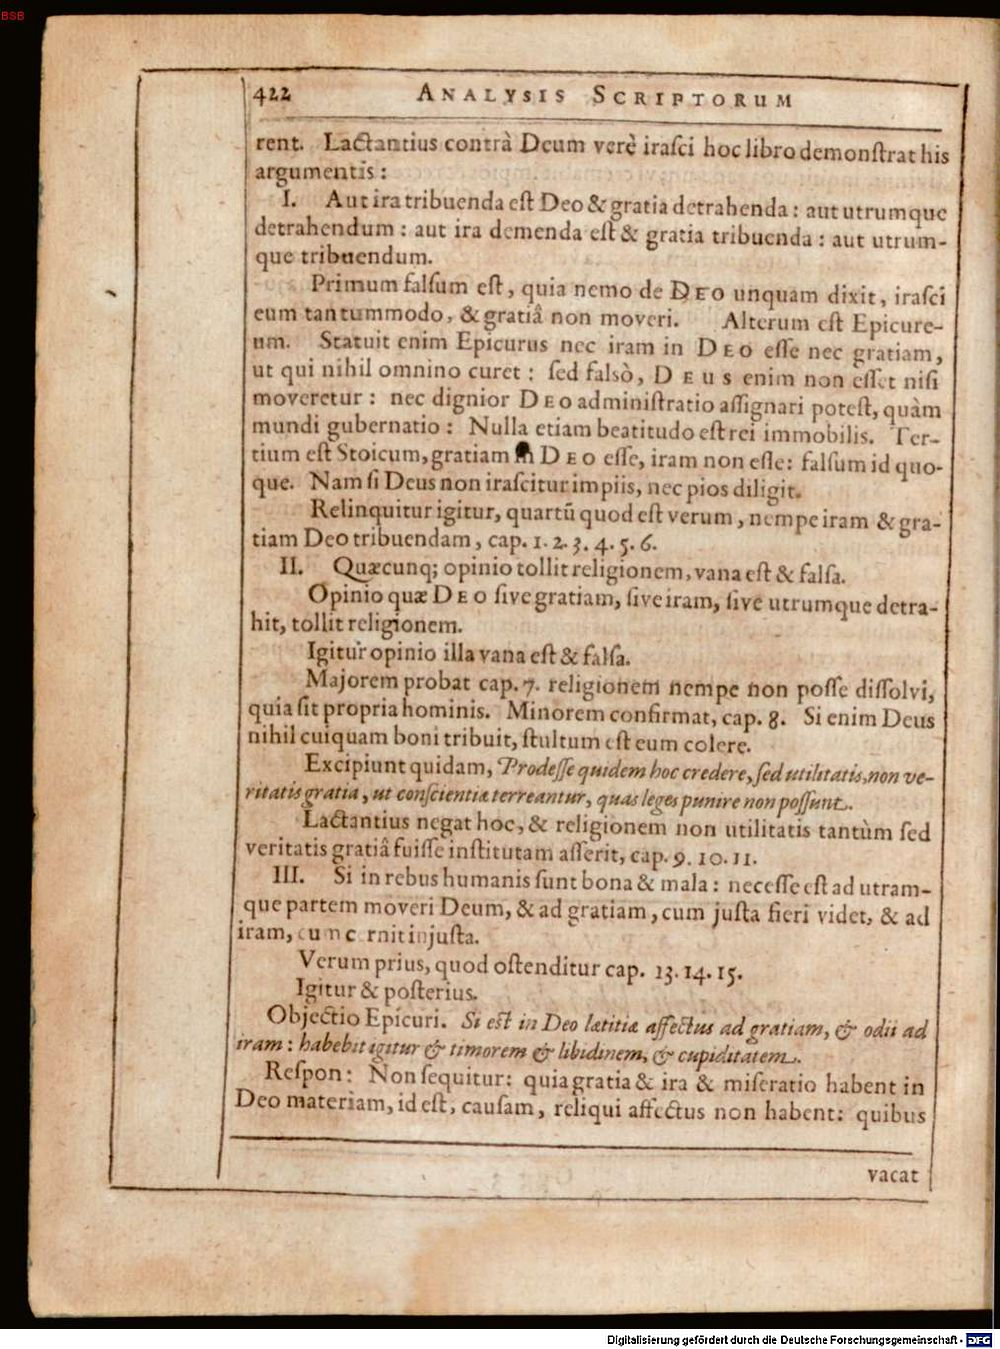 BSB
422 ANALYSIS SCRIPTORUM
rent. Lactantius contrà Deum verè irasci hoc libro demonstrat his
argumentis:
I. Aut ira tribuenda est Deo & gratia detrahenda: aut utrumque
detrahendum: aut ira demenda est & gratia tribuenda: aut utrum-
que tribuendum.
Primum falsum est, quia nemo de DEO unquam dixit, irasci
eum tantummodo, & gratiâ non moveri. Alterum est Epicure-
um. Statuit enim Epicurus nec iram in DEO esse nec gratiam,
ut qui nihil omnino curet: sed falsò, DEUS enim non esset nisi
moveretur: nec dignior DEO administratio assignari potest, quàm
mundi gubernatio: Nulla etiam beatitudo est rei immobilis. Ter-
tium est Stoicum, gratiam in DEO esse, iram non esse: falsum id quo-
que. Nam si Deus non irascitur impiis, nec pios diligit.
Relinquitur igitur, quartũ quod est verum, nempe iram & gra-
tiam Deo tribuendam, cap. 1. 2. 3. 4. 5. 6.
II. Quæcunq; opinio tollit religionem, vana est & falsa.
Opinio quæ DEO sive gratiam, sive iram, sive utrumque detra-
hit, tollit religionem.
Igitur opinio illa vana est & falsa.
Majorem probat cap. 7. religionem nempe non posse dissolvi,
quia sit propria hominis. Minorem confirmat, cap. 8. Si enim Deus
nihil cuiquam boni tribuit, stultum est eum colere.
Excipiunt quidam, Prodesse quidem hoc credere, sed utilitatis, non ve-
ritatis gratia, ut conscientiæ terreantur, quas leges punire non possunt.
Lactantius negat hoc, & religionem non utilitatis tantùm sed
veritatis gratiâ fuisse institutam asserit, cap. 9. 10. 11.
III. Si in rebus humanis sunt bona & mala: necesse est ad utram-
que partem moveri Deum, & ad gratiam, cum justa fieri videt, & ad
iram, cum cernit injusta.
Verum prius, quod ostenditur cap. 13. 14. 15.
Igitur & posterius.
Objectio Epicuri. Si est in Deo lætitiæ affectus ad gratiam, & odii ad
iram: habebit igitur & timorem & libidinem, & cupiditatem.
Respon: Non sequitur: quia gratia & ira & miseratio habent in
Deo materiam, id est, causam, reliqui affectus non habent: quibus
vacat
Digitalisierung gefördert durch die Deutsche Forschungsgemeinschaft - DFG